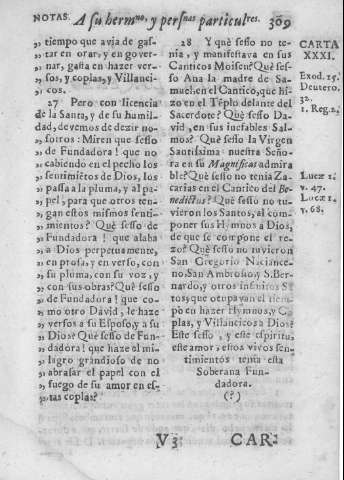 NOTAS. A su hermno. y persnas particulres. 309
„ tiempo que avia de gas-
„ tar en orar, y en gover-
„ nar, gasta en hazer ver-
„ sos, y coplas, y Villanci-
„ cos.
27 Pero con licencia
de la Santa, y de su humil-
dad, devemos de dezir no-
sotros: Miren que sesso
de Fundadora! que no
cabiendo en el pecho los
sentimiẽtos de Dios, los
passa a la pluma, y al pa-
pel, para que otros ten-
gan estos mismos senti-
„ mientos? Què sesso de
„ Fundadora! que alaba
„ à Dios perpetuamente,
„ en prosa, y en verso, con
„ su pluma, con su voz, y
„ con sus obras? Què sesso
„ de Fundadora! que co-
„ mo otro David, le haze
„ versos a su Esposo, y a su
„ Dios? Què sesso de Fun-
„ dadora! que haze el mi-
„ lagro grandioso de no
„ abrasar el papel con el
„ fuego de su amor en es-
„ tas coplas?
28 Y què sesso no te-
nia, y manifestava en sus
Canticos Moisen? Què ses-
so Ana la madre de Sa-
muel, en el Cantico, que hi-
zo en el Tẽplo delante del
Sacerdote? Què sesso Da-
vid, en sus inefables Sal-
mos? Què sesso la Virgen
Santissima nuestra Seño-
ra en su Magnificas admira
ble? Què sesso no tenia Za-
carias en el Cantico del Be-
nedictus? Què sesso no tu-
vieron los Santos, al com-
poner sus Hymnos a Dios,
de que se compone el re-
zo? Què sesso no tuvieron
San Gregorio Nacience-
no, San Ambrosio, y S. Ber-
nardo, y otros infinitos S[...]
tos, que ocupavan el tiem-
po en hazer Hymnos, y Co
plas, y Villancicos a Dios?
Este sesso, y este espiritu,
este amor, estos vivos sen-
timientos tenia esta
Soberana Fun-
dadora.
(?)
CARTA
XXXI.
Exod. 15.
Deutero.
32.
1. Reg. 2.
Lucæ 1.
v. 47.
Lucæ 1.
v. 68.
V3 CAR-